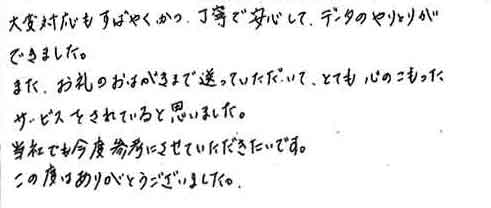 大変対応もすばやくかつ、丁寧で安心して、データのやりとりが
できました。
また、お礼のおはがきまで送っていただいて、とても心のこもった
サービスをされていると思いました。
当社でも今度参考にさせていただきたいです。
この度はありがとうございました。